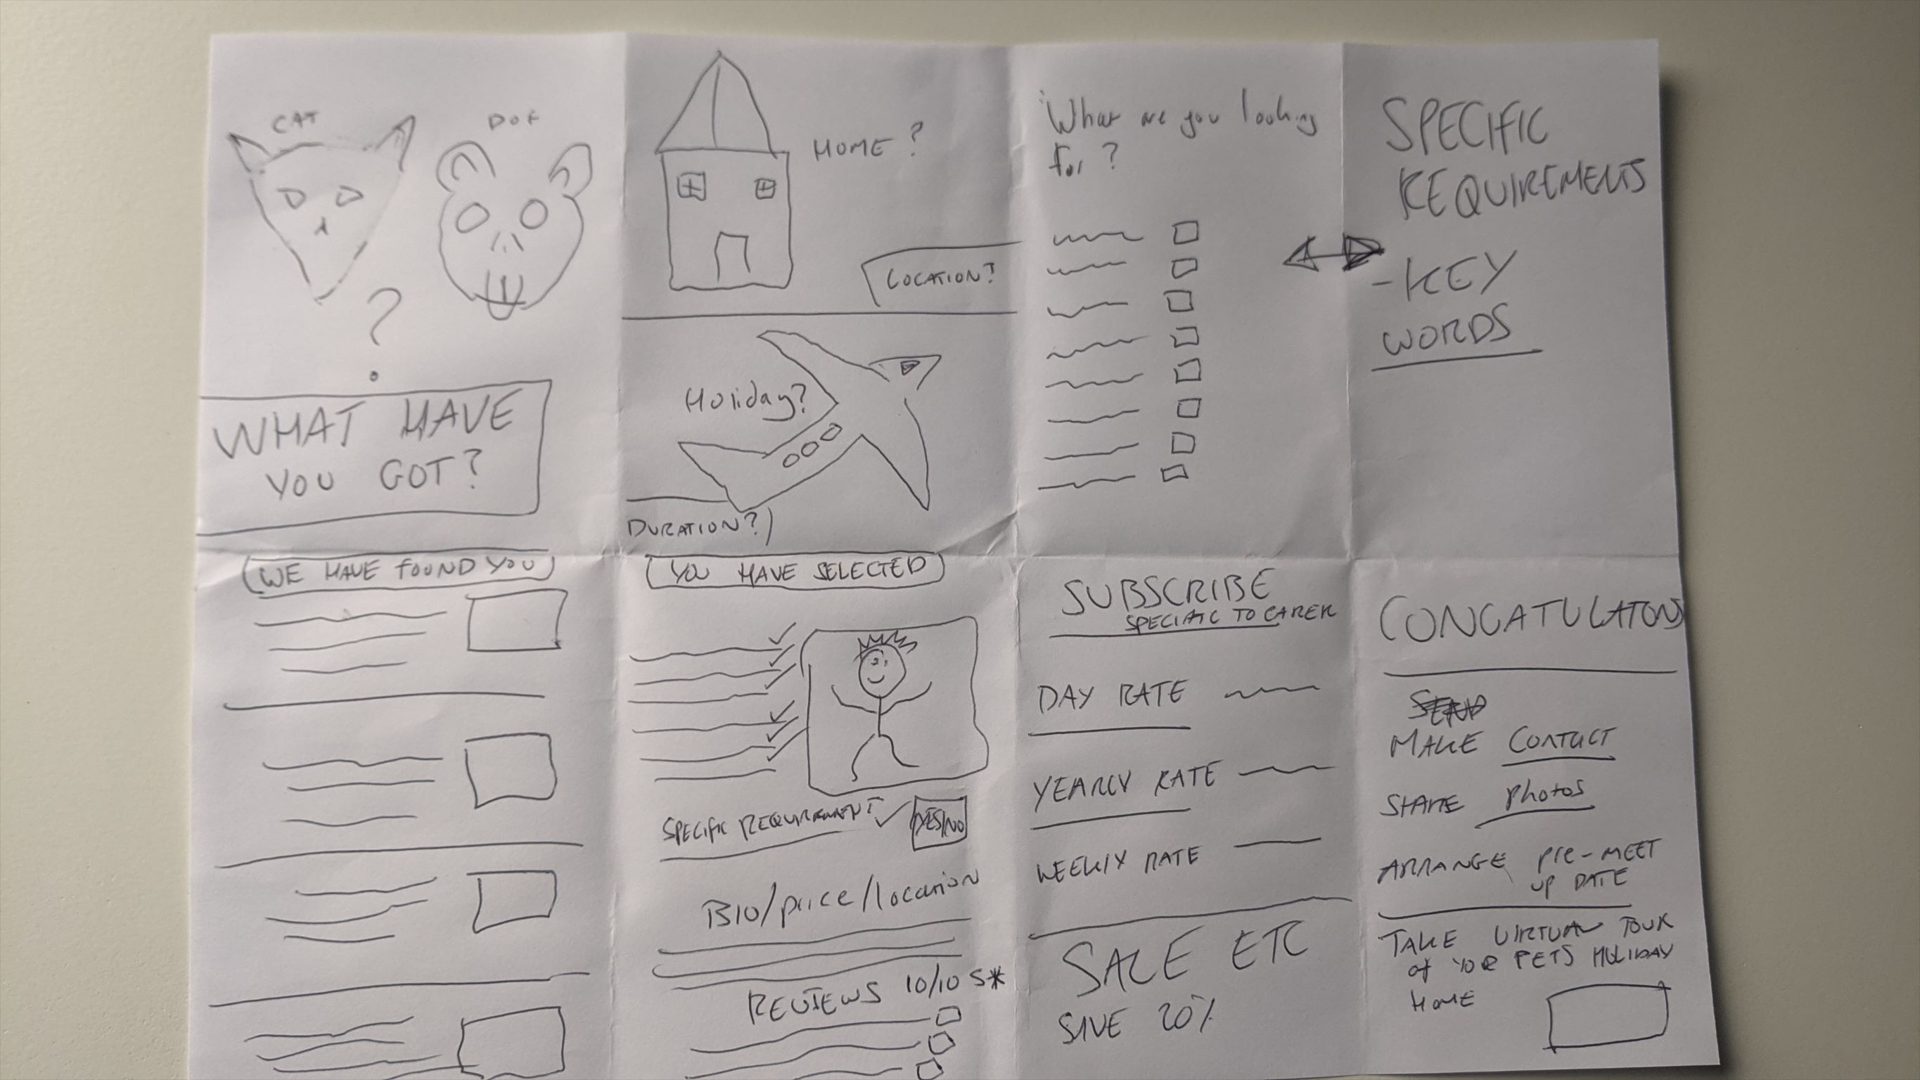 CAT
DOG
?
WHAT HAVE
YOU GOT?
HOME?
LOCATION?
Holiday?
DURATION?
What are you looking
for?
SPECIFIC
REQUIREMENTS
- KEY
WORDS
WE HAVE FOUND YOU
YOU HAVE SELECTED
SPECIFIC REQUIREMENT
YES/NO
BIO/price/location
REVIEWS 10/10 5*
SUBSCRIBE
SPECIFIC TO CARER
DAY RATE
YEARLY RATE
WEEKLY RATE
SALE ETC
SAVE 20%
CONGATULATONS
SEND
MAKE CONTACT
SHARE photos
ARRANGE pre-MEET
UP DATE
TAKE VIRTUAL TOUR
of YOR PETS HOLIDAY
HOME